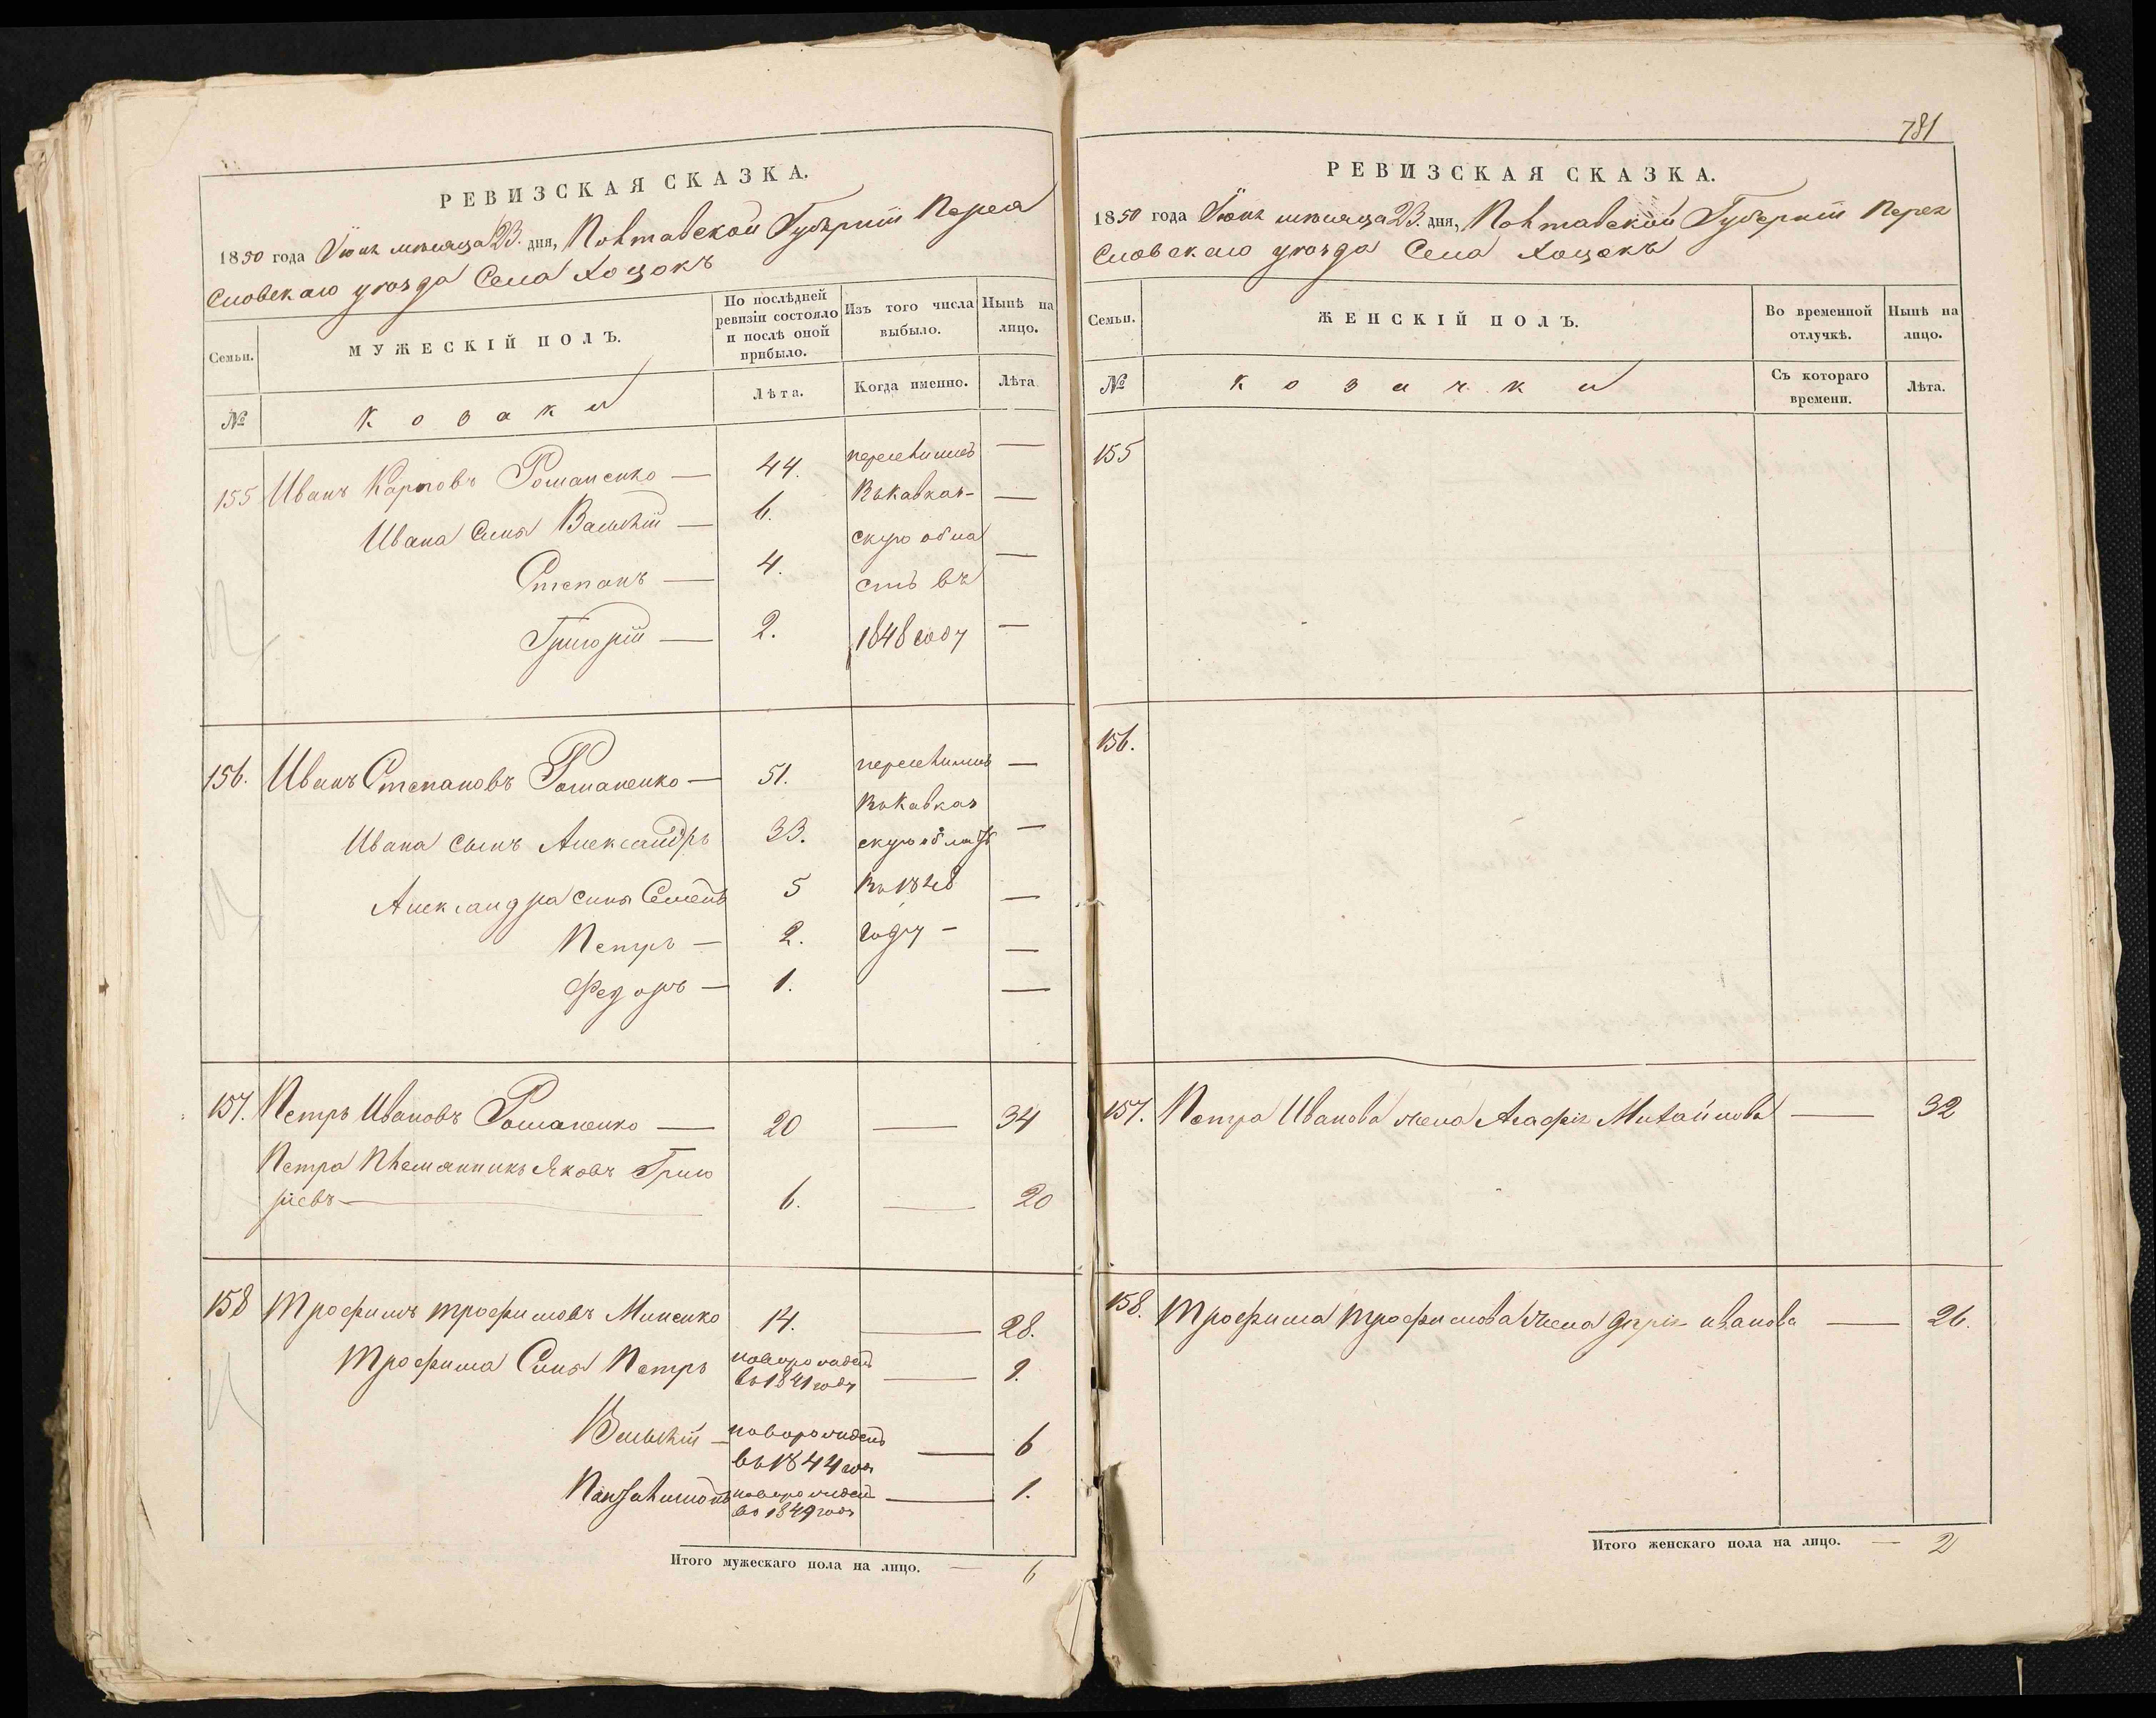 РЕВИЗСКАЯ СКАЗКА.
1850 года Іюня мѣсяца 23. дня, Полтавской Губерніи Перея
словскаго уѣзда Села Хоцокъ
Семьи.
МУЖЕСКІЙ ПОЛЪ.
По послѣдней
ревизіи состояло
и послѣ оной
прибыло.
Изъ того числа
выбыло.
Нынѣ на
лицо.
№
Козаки
Лѣта.
Когда именно.
Лѣта
155 Иванъ Карповъ Романенко — 44. переселились —
Въ Кавказ-
Ивана Сынъ Василій — 6. —
скую обла
Степанъ — 4. —
сть въ
Григорій — 2. 1848 году —
156. Иванъ Степановъ Романенко — 51. переселились —
Въ Кавказ
Ивана сынъ Александръ 33. скую область —
Александра сынъ Семенъ 5 Въ 1848 —
Петръ — 2. году — —
Федоръ — 1. —
157. Петръ Ивановъ Романенко — 20 — 34
Петра Племянникъ Яковъ Григо
рьевъ — 6. — 20
158 Трофимъ Трофимовъ Миненко 14. — 28.
Трофима Сынъ Петръ новорожденъ — 9.
въ 1841 году
Василій — новорожденъ — 6
въ 1844 году
Пантелимонъ новорожденъ — 1.
въ 1849 году
Итого мужескаго пола на лицо. — 6
781
РЕВИЗСКАЯ СКАЗКА.
1850 года Іюня мѣсяца 23. дня, Полтавской Губерніи Перея
словскаго уѣзда Села Хоцокъ
Семьи.
ЖЕНСКІЙ ПОЛЪ.
Во временной
отлучкѣ.
Нынѣ на
лицо.
№
Козачки
Съ котораго
времени.
Лѣта.
155
156.
157. Петра Иванова жена Агафія Михайлова — 32
158. Трофима Трофимова жена Дарія Иванова — 26.
Итого женскаго пола на лицо. — 2